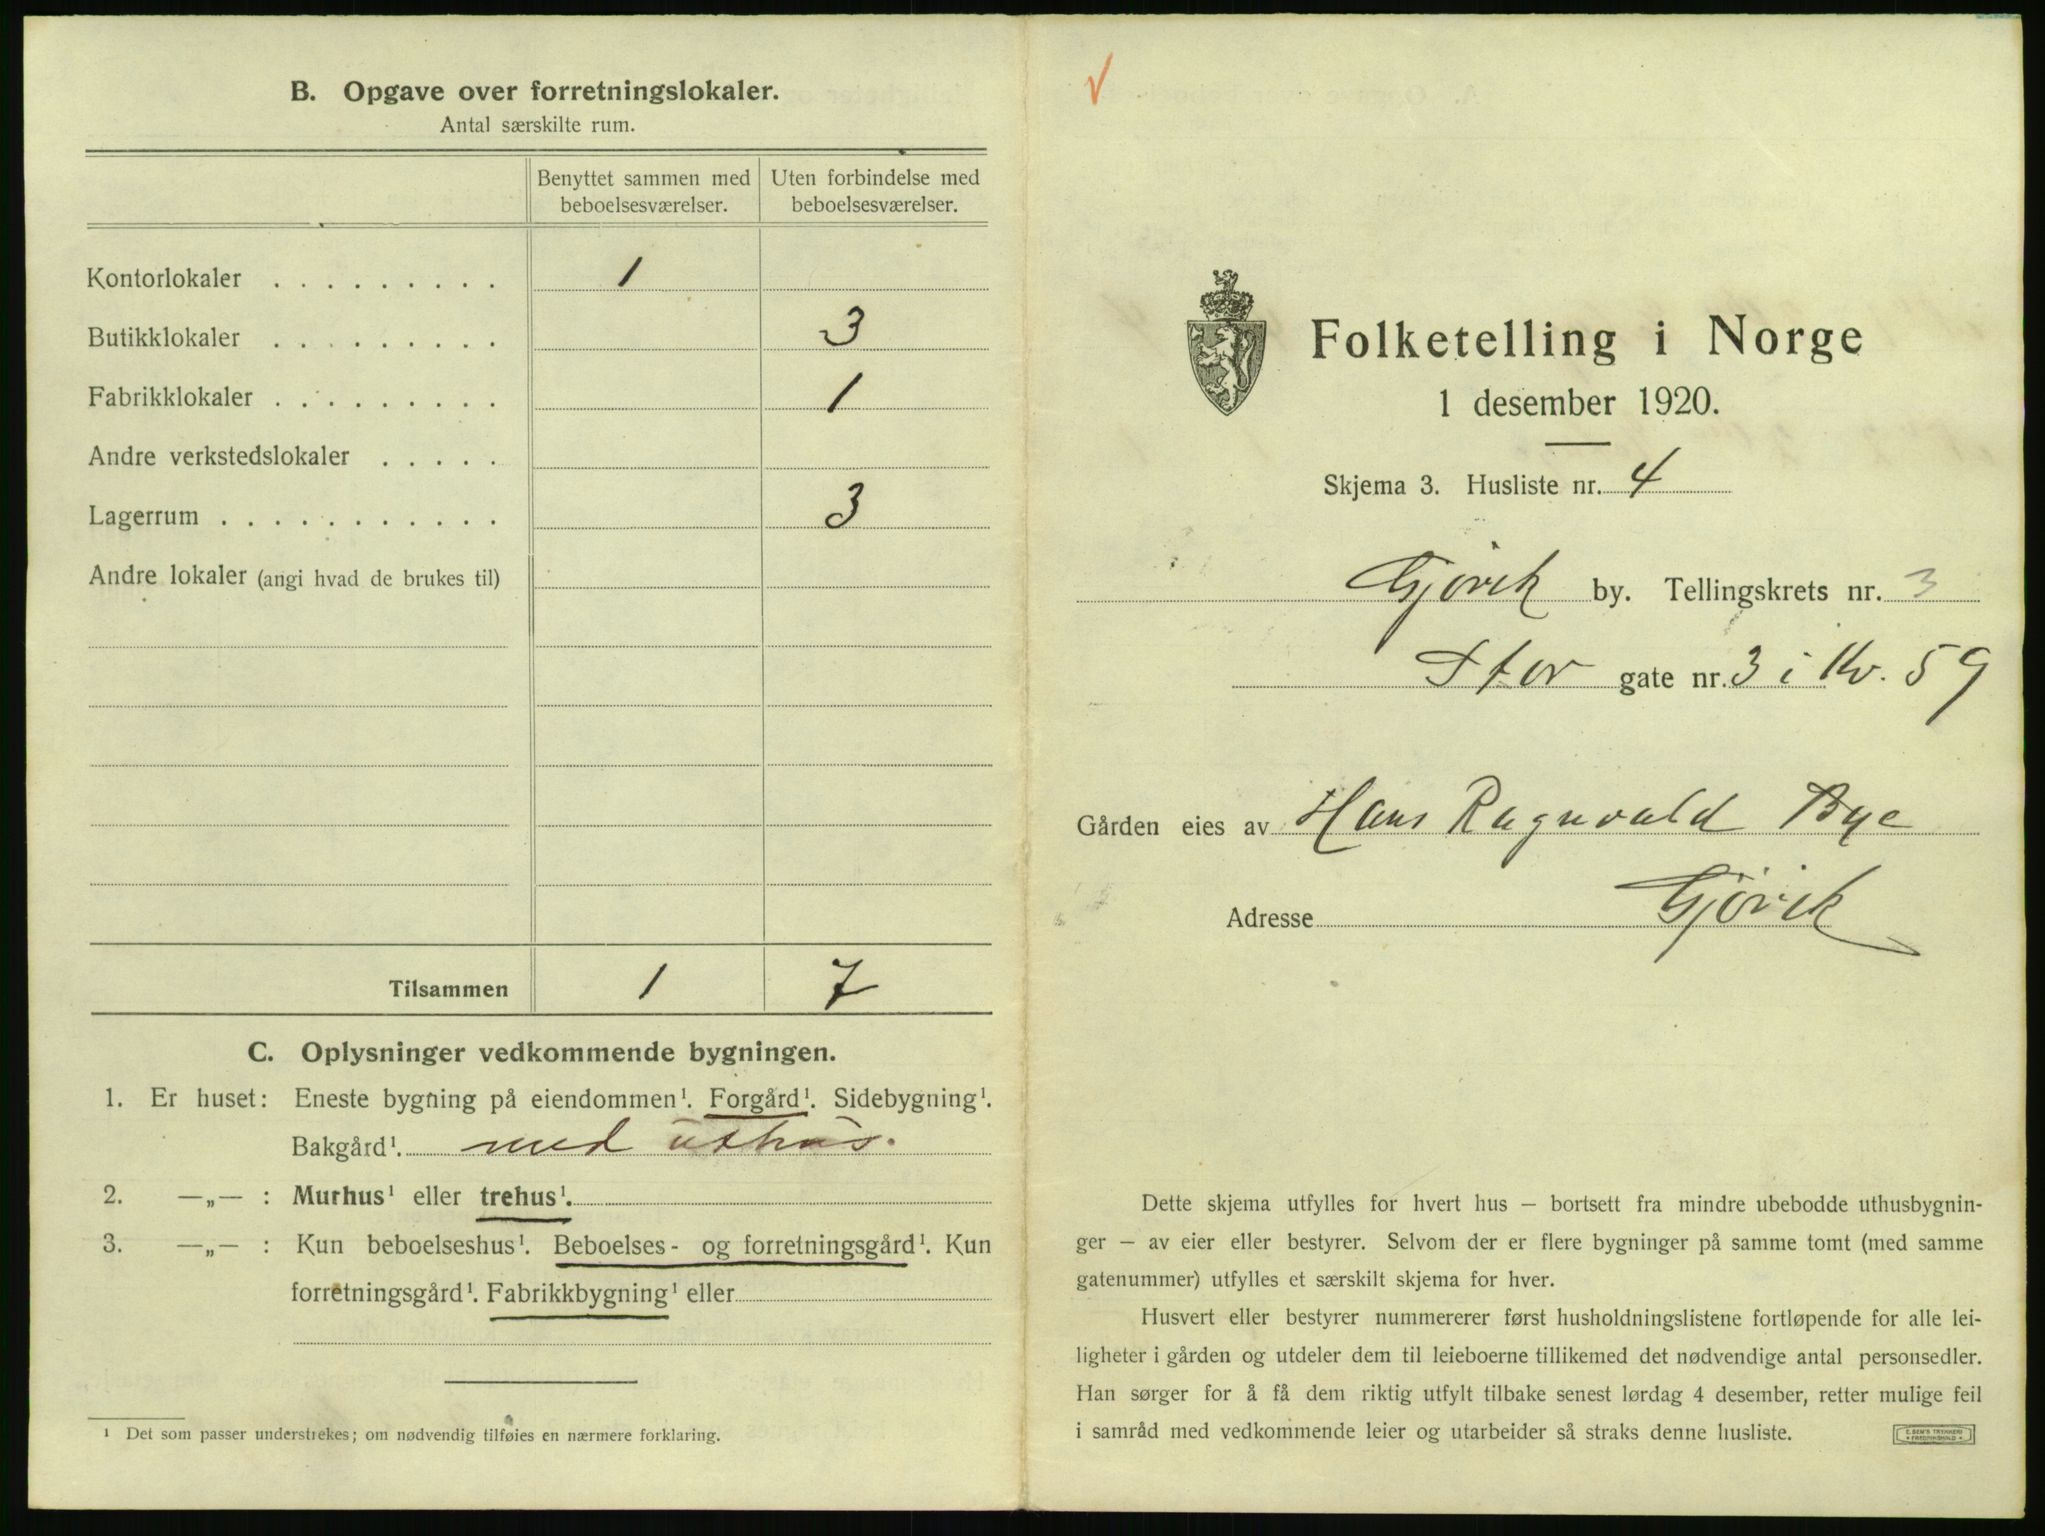 B. Opgave over forretningslokaler.
Antal særskilte rum.
Benyttet sammen med beboelsesværelser.
Uten forbindelse med beboelsesværelser.
Kontorlokaler . . . . . . . . . 1
Butikklokaler . . . . . . . . . 3
Fabrikklokaler . . . . . . . . . 1
Andre verkstedslokaler . . . . .
Lagerrum . . . . . . . . . . . 3
Andre lokaler (angi hvad de brukes til)
Tilsammen 1 7
C. Oplysninger vedkommende bygningen.
1. Er huset: Eneste bygning på eiendommen¹. Forgård¹. Sidebygning¹.
Bakgård¹. med uthus.
2. —„— : Murhus¹ eller trehus¹.
3. —„— : Kun beboelseshus¹. Beboelses- og forretningsgård¹. Kun
forretningsgård¹. Fabrikkbygning¹ eller
¹ Det som passer understrekes; om nødvendig tilføies en nærmere forklaring.
Folketelling i Norge
1 desember 1920.
Skjema 3. Husliste nr. 4
Gjövik by. Tellingskrets nr. 3
Stor gate nr. 3 i Kv. 59
Gården eies av Hans Ragnvald Bye
Adresse Gjövik
Dette skjema utfylles for hvert hus – bortsett fra mindre ubebodde uthusbygnin-
ger – av eier eller bestyrer. Selvom der er flere bygninger på samme tomt (med samme
gatenummer) utfylles et særskilt skjema for hver.
Husvert eller bestyrer nummererer først husholdningslistene fortløpende for alle lei-
ligheter i gården og utdeler dem til leieboerne tillikemed det nødvendige antal personsedler.
Han sørger for å få dem riktig utfylt tilbake senest lørdag 4 desember, retter mulige feil
i samråd med vedkommende leier og utarbeider så straks denne husliste.
E. SEM'S TRYKKERI
FREDRIKSHALD